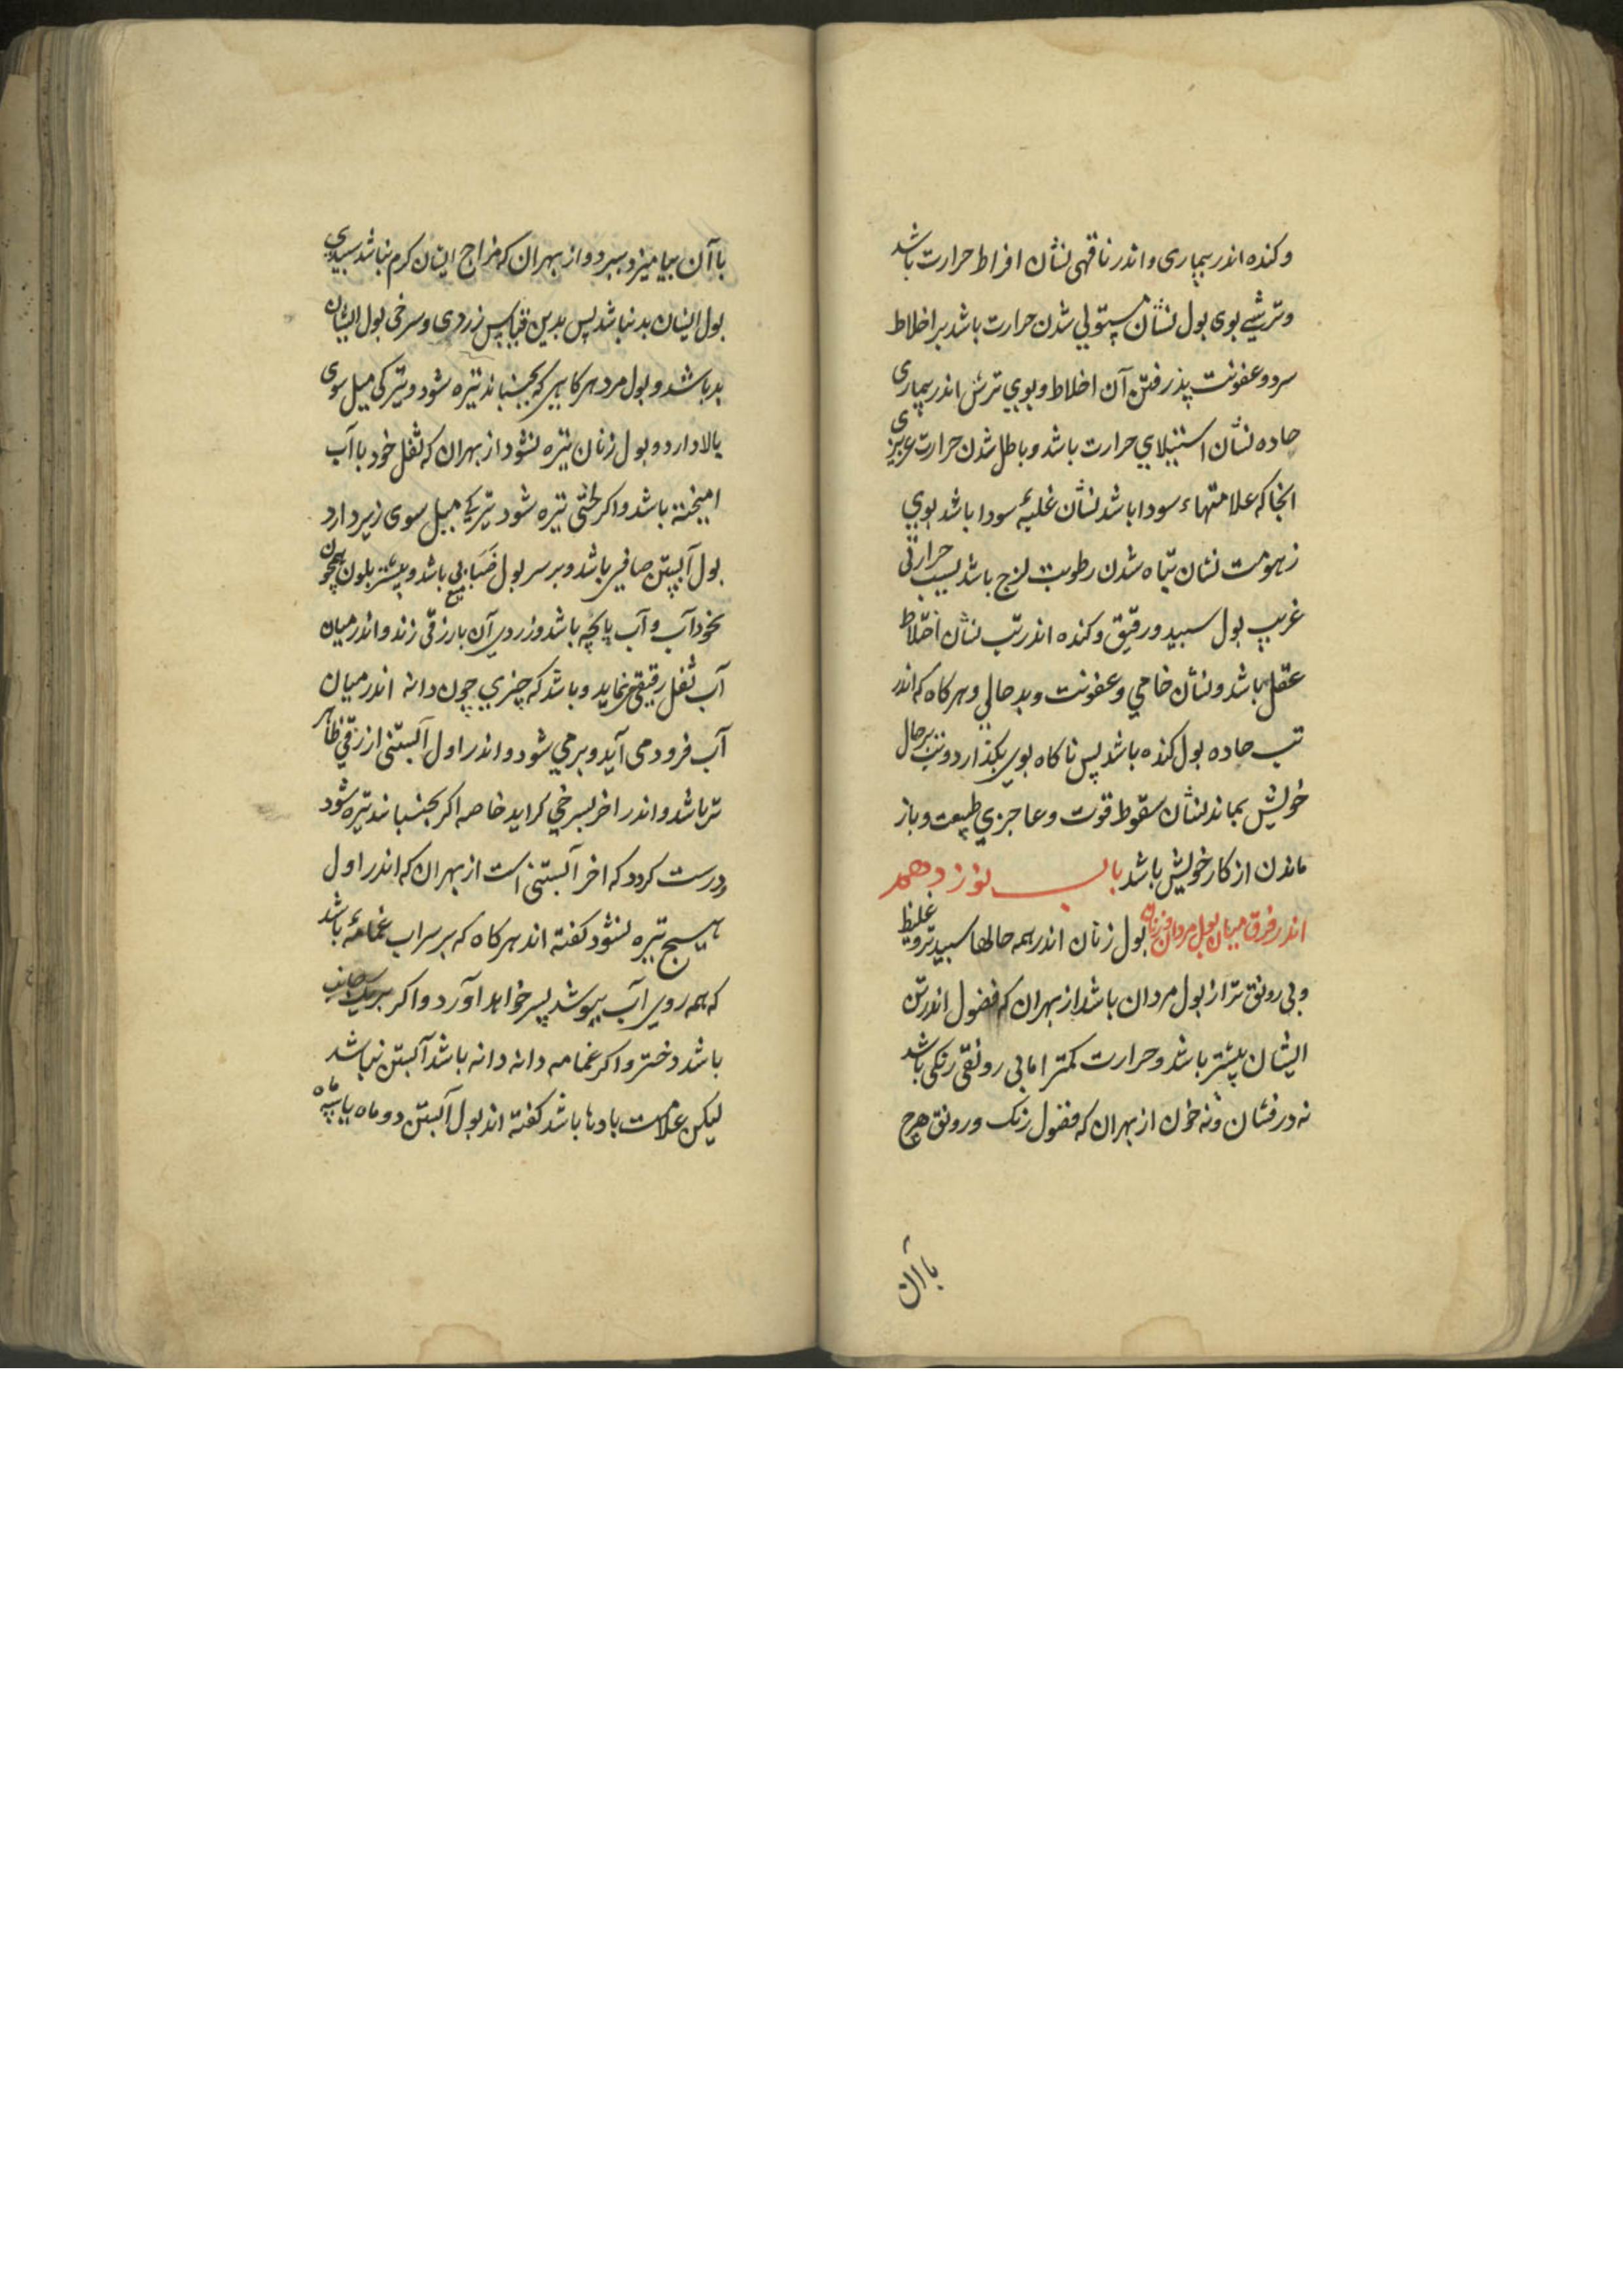 وکنده اندر بیماری و اندر ناقهی نشان افراط حرارت باشد
وترشی بوی بول نشان مستولی شدن حرارت باشد بر اخلاط
سرد و عفونت پذرفتن آن اخلاط و بوی ترش اندر بیماری
حاده نشان استیلای حرارت باشد و باطل شدن حرارت غریزی
انجا که علامتهاء سودا باشد نشان غلبهٔ سودا باشد بوی
زهومت نشان تباه شدن رطوبت لزج باشد بسبب حرارتی
غریب بول سپید و رقیق و کنده اندر تب نشان اختلاط
عقل باشد و نشان خامی و عفونت و بد حالی و هرکاه که اندر
تب حاده بول کنده باشد پس ناکاه بوی بکذارد و تب بر حال
خویش بماند نشان سقوط قوت و عاجزی طبیعت و باز
ماندن از کار خویش باشد باب نوزدهم
اندر فرق میان بول مردان و زنان بول زنان اندر همه حالها سپیدتر و غلیظ
و بی رونق تر از بول مردان باشد از بهر ان که فضول اندر تن
ایشان بیشتر باشد و حرارت کمتر اما بی رونقی رنکی باشد
نه درفشان و نه خون از بهر ان که فضول رنک و رونق هرچ
باآن
باآن بیامیزد ببرد و از بهر ان که مزاج ایشان کرم نباشد سپیدی
بول ایشان بد نباشد پس بدین قیاس زردی و سرخی بول ایشان
بد باشد و بول مرد هرکاهی که بجنبانند تیره شود و تیرکی میل سوی
بالا دارد و بول زنان تیره نشود از بهر ان که ثفل خود با آب
امیخته باشد و اکر لختی تیره شود تیرکی میل سوی زیر دارد
بول آبستن صافی باشد و بر سر بول ضبابی باشد و بیشتر بلون همچون
نخود آب و آب پایچه باشد و زردی آن با رزقی زند و اندر میان
آب ثفل رقیقی نماید و باشد که چیزی چون دانه اندر میان
آب فرود می آید و بر می شود و اندر اول آبستنی ازرقی ظاهر
تر باشد و اندر اخر بسرخی کراید خاصه اکر بجنبانند تیره شود
ودرست کردد که اخر آبستنی است از بهر ان که اندر اول
هیچ تیره نشود کفته اند هرکاه که بر سر اب غمامهٔ باشد
که همه روی آب بپوشد پسر خواهد آورد و اکر بر یک جانب
باشد دختر و اکر غمامه دانه دانه باشد آبستن نباشد
لیکن علامت بادها باشد کفته اند بول آبستن دو ماه یا سه ماه